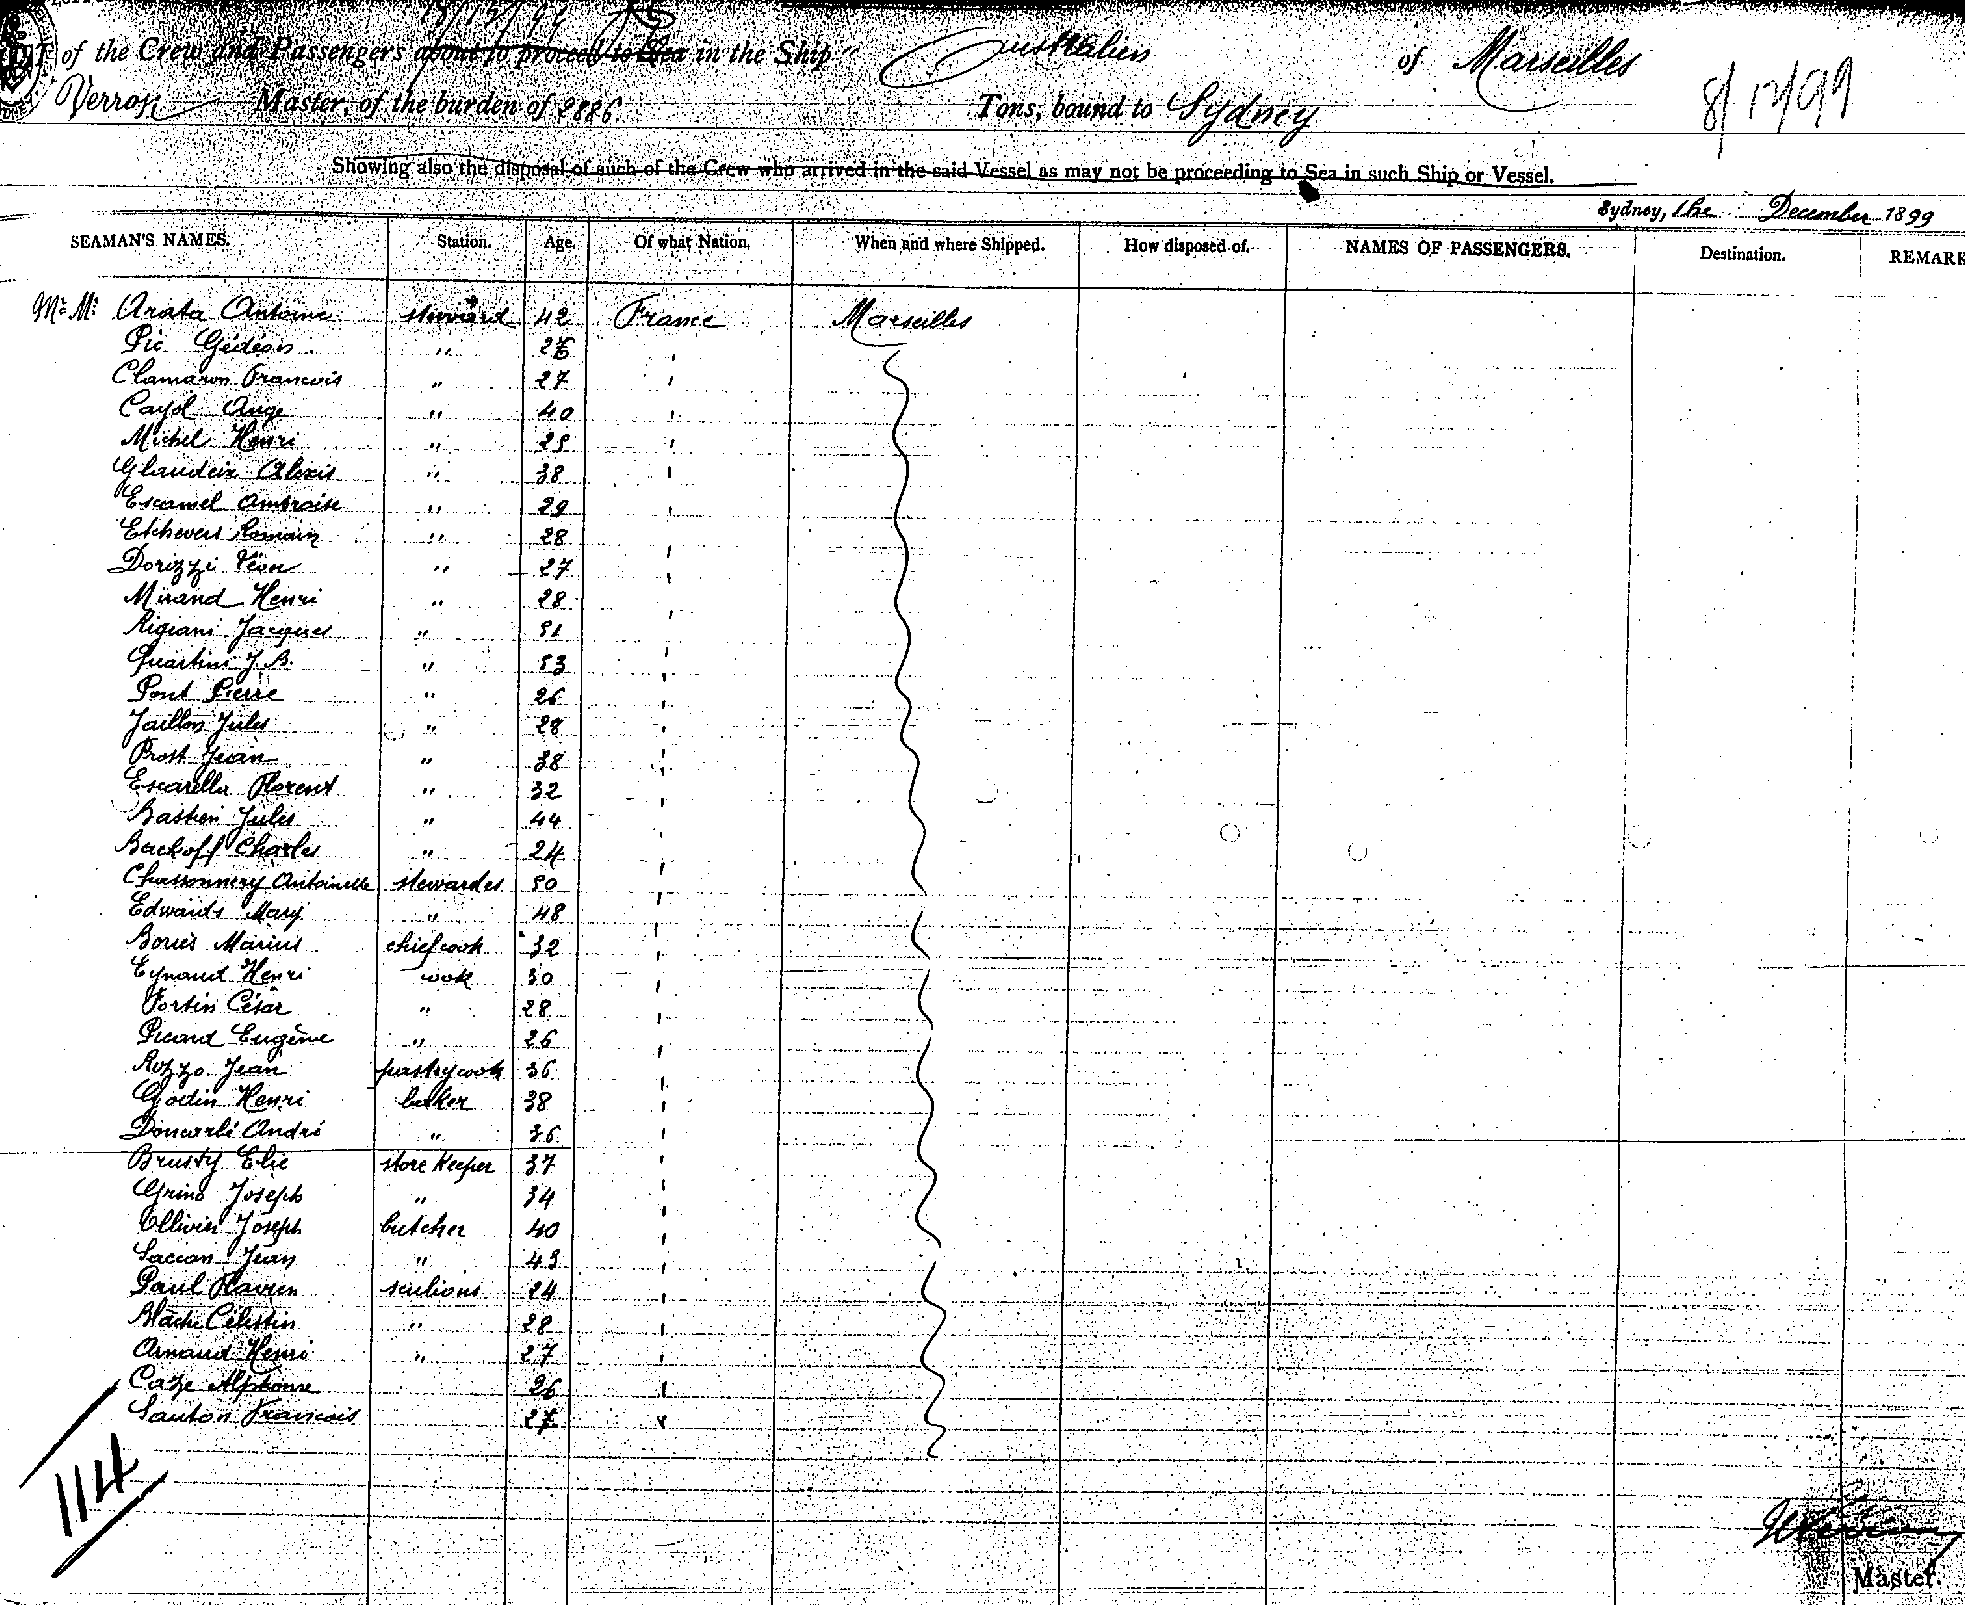 of the Crew and Passengers about to proceed to Sea in the Ship "Australien of Marseilles
8/12/99
Verron Master, of the burden of 2826 Tons, bound to Sydney
Showing also the disposal of such of the Crew who arrived in the said Vessel as may not be proceeding to Sea in such Ship or Vessel.
Sydney, the December 1899
SEAMAN'S NAMES. Station. Age. Of what Nation. When and where Shipped. How disposed of. NAMES OF PASSENGERS. Destination. REMARK
Arata Antoine steward 42 France Marseilles
Pic Gédéon " "
Clamaron Francois " 27 "
Cayol Ange " 40 "
Michel Henri " "
Glaudeix Alexis " 38 "
Escamel Ambroise " 29 "
Etchevers Romain " 28 "
Dorizzi Léon " 27 "
Mirand Henri " 28 "
Rigiani Jacques " "
Quartini J. B. " "
Pont Pierre " 26 "
Jaillon Jules " 28 "
Prost Jean " 38 "
Escarella Florent " 32 "
Bastien Jules " 44 "
Backoff Charles " 24 "
Antoinette stewardes 50 "
Edwards Mary " 48 "
Bories Marius chief cook 32 "
Eynaud Henri cook 30 "
Fortin César " 28 "
Picard Eugène " 26 "
Rozzo Jean pastrycook 36 "
Godin Henri baker 38 "
André " 36 "
Brusty Elie store keeper 37 "
Grino Joseph " 34 "
Ollivier Joseph butcher 40 "
Jean " 43 "
Paul Flavien sculions 24 "
Blache Célestin " 28 "
Arnaud Henri " 27 "
Caze Alphonse 26 "
Santon Francois 27 "
114
Master.